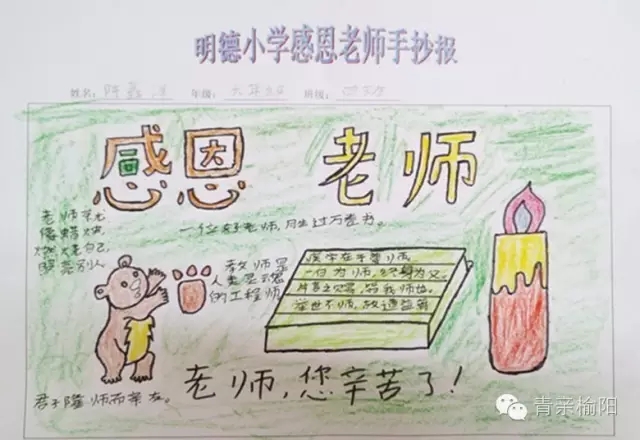 明德小学感恩老师手抄报
姓名：
年级：六年级
班级：
感恩 老师
老师就
像蜡烛
燃烧自己
照亮别人
一位好老师，胜过万卷书。
教师是
人类灵魂
的工程师
疾学在于尊师。
一日为师，终身为父。
片言之赐，皆我师也。
举世不师，故道益离
老师，您辛苦了！
君子隆师而亲友。
青亲榆阳